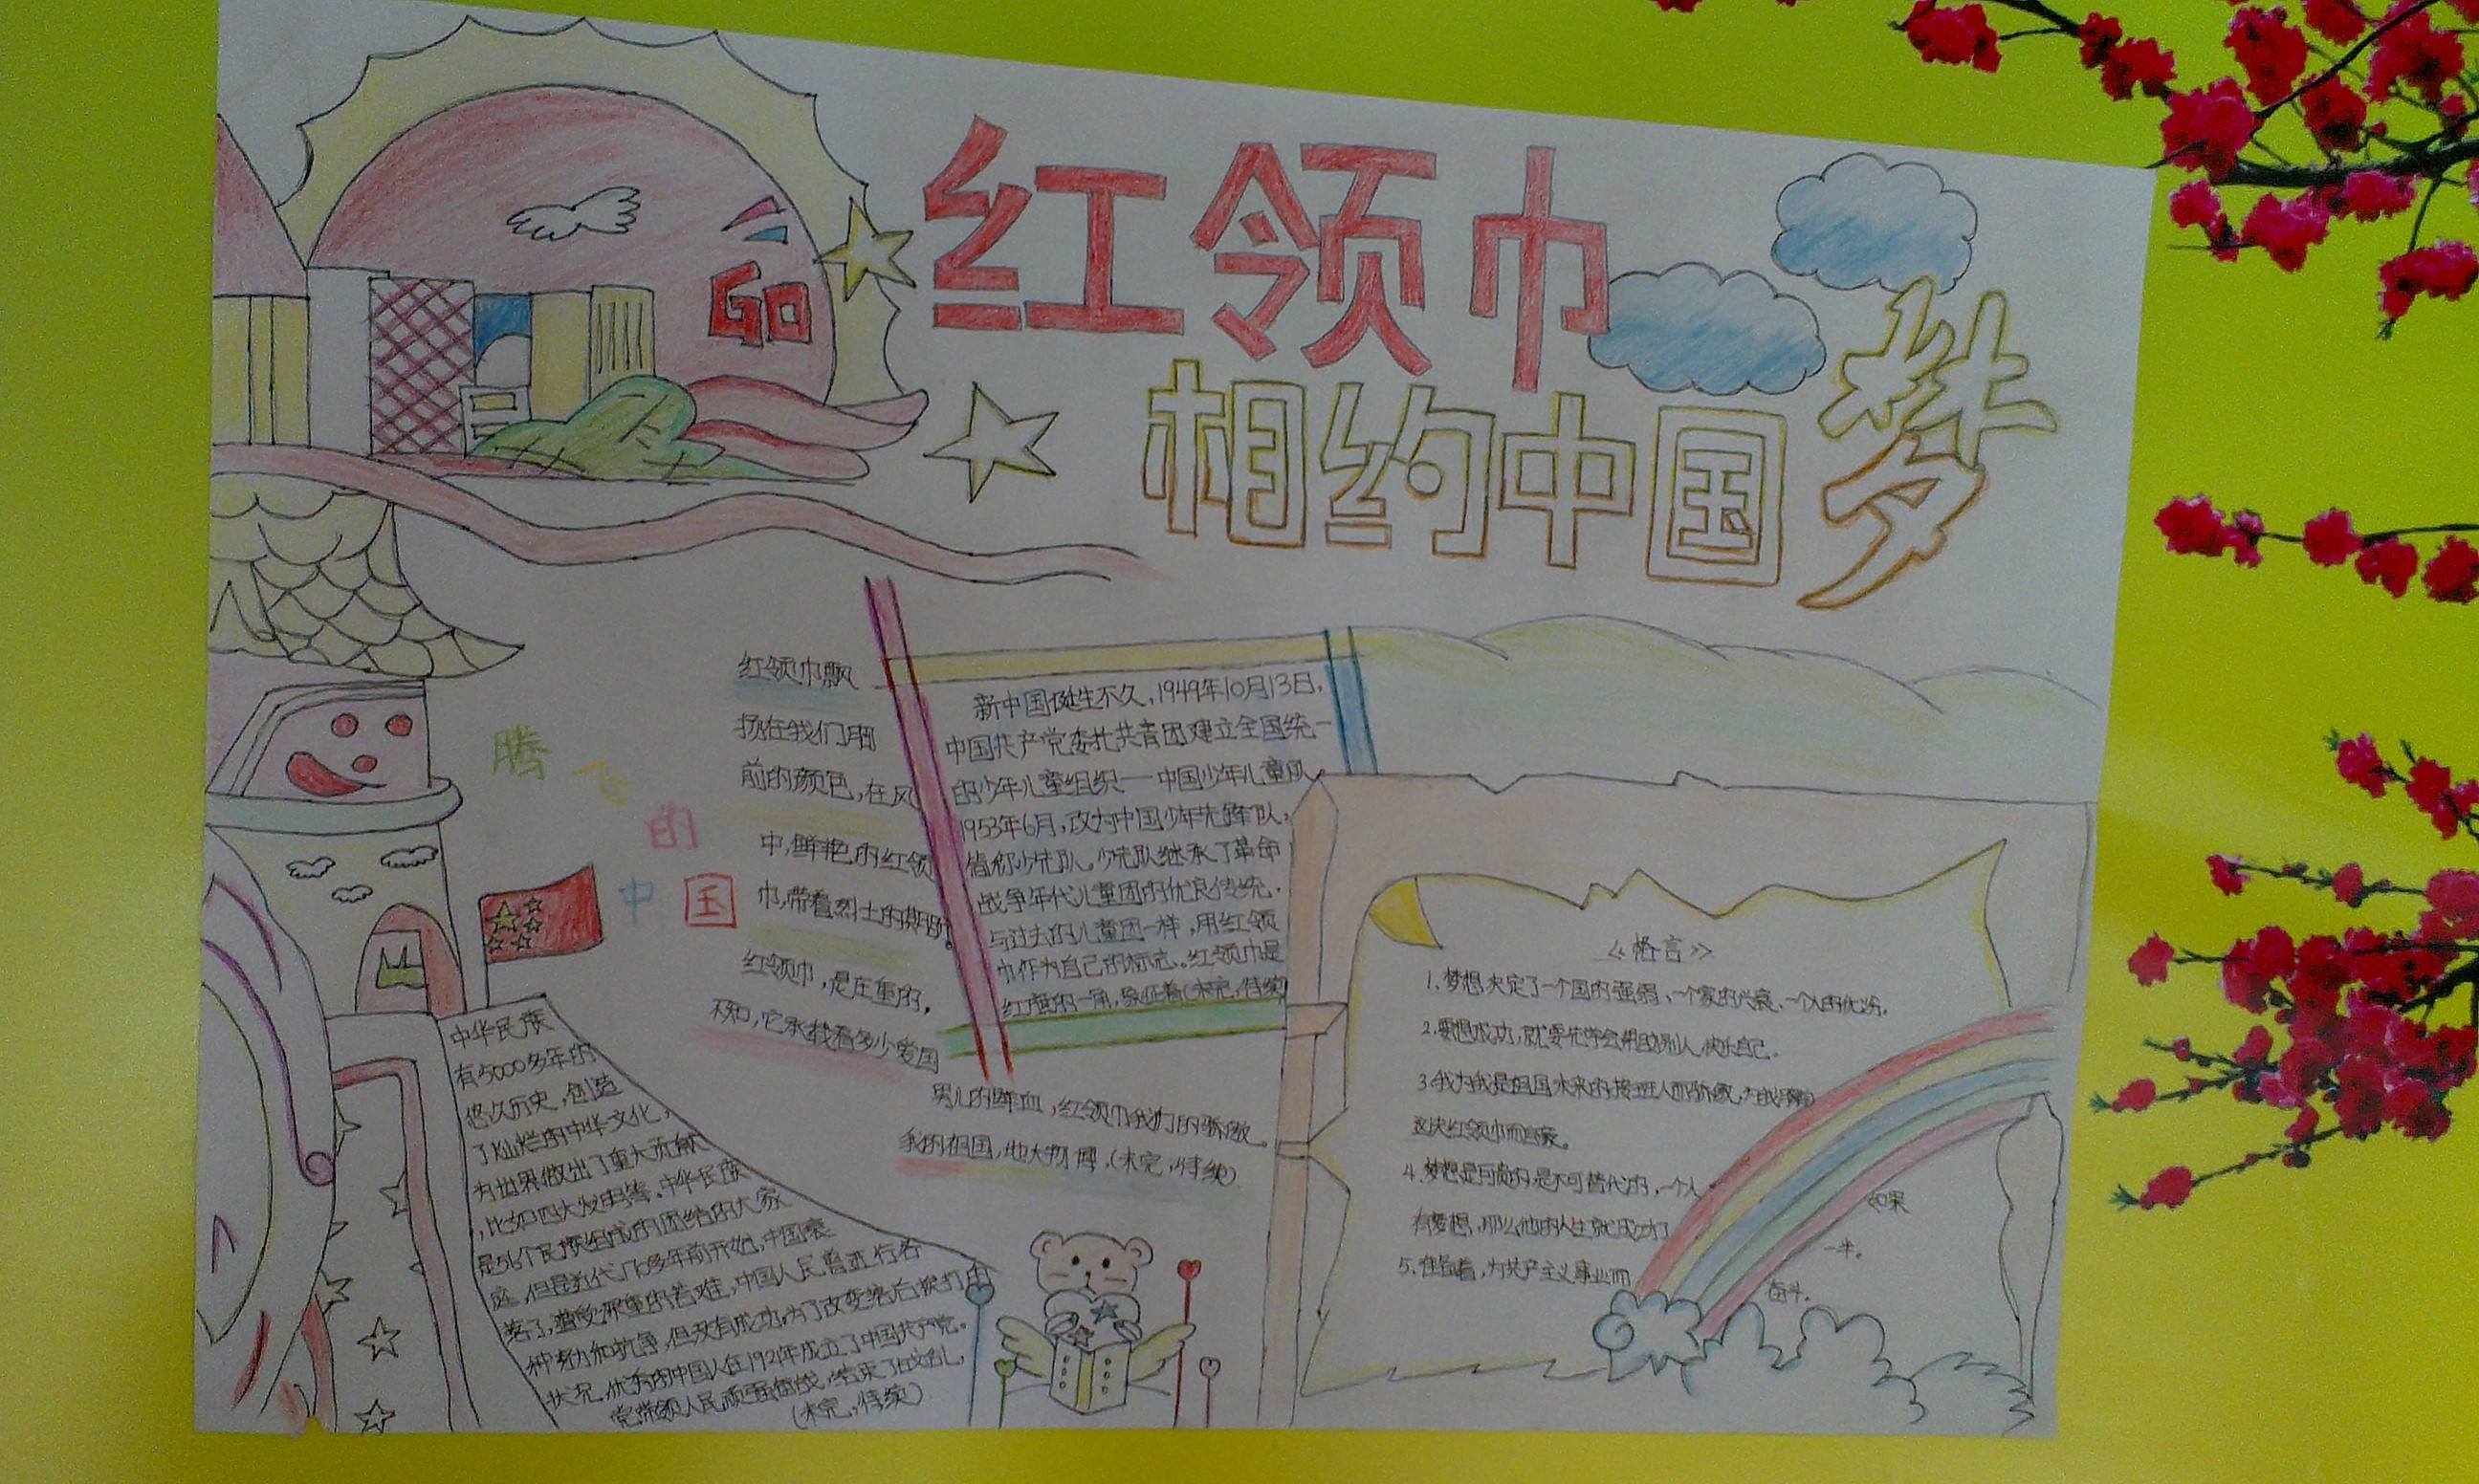 GO
红领巾
相约中国梦
腾飞的中国
红领巾飘
扬在我们胸
前的颜色,在风
中,鲜艳的红领
巾,带着烈士的期盼。
红领巾,是庄重的,
不知,它承载着多少爱国
男儿的鲜血,红领巾我们的骄傲。
我的祖国,地大物博.(未完,待续)
新中国诞生不久,1949年10月13日,
中国共产党委托共青团建立全国统一
的少年儿童组织——中国少年儿童队,
1953年6月,改为中国少年先锋队,
简称少先队。少先队继承了革命
战争年代儿童团的优良传统,
与过去的儿童团一样,用红领
巾作为自己的标志。红领巾是
红旗的一角,象征着(未完,待续)
中华民族
有5000多年的
悠久历史,创造
了灿烂的中华文化,
为世界做出了重大贡献
,比如四大发明等。中华民族
是56个民族组成的团结的大家
庭,但是近代170多年前开始,中国衰
落了,遭受深重的苦难,中国人民曾进行各
种努力和抗争,但没有成功,为了改变落后挨打的
状况,优秀的中国人在1921年成立了中国共产党。
党带领人民顽强奋战,结束了
(未完,待续)
《格言》
1、梦想决定了一个国的强弱、一个家的兴衰、一个人的优劣。
2、要想成功,就要先学会帮助别人,快乐自己。
3、我为我是祖国未来的接班人而骄傲,为我胸前
这块红领巾而自豪。
4、梦想是可贵的是不可替代的,一个人如果
有梦想,那么他的人生就成功了一半。
5、准备着,为共产主义事业而奋斗。